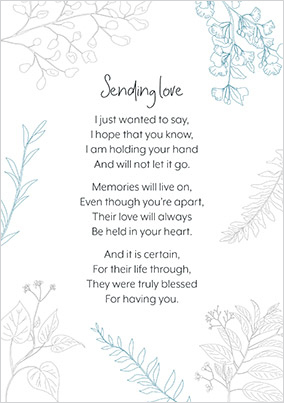 Sending love
I just wanted to say,
I hope that you know,
I am holding your hand
And will not let it go.
Memories will live on,
Even though you're apart,
Their love will always
Be held in your heart.
And it is certain,
For their life through,
They were truly blessed
For having you.